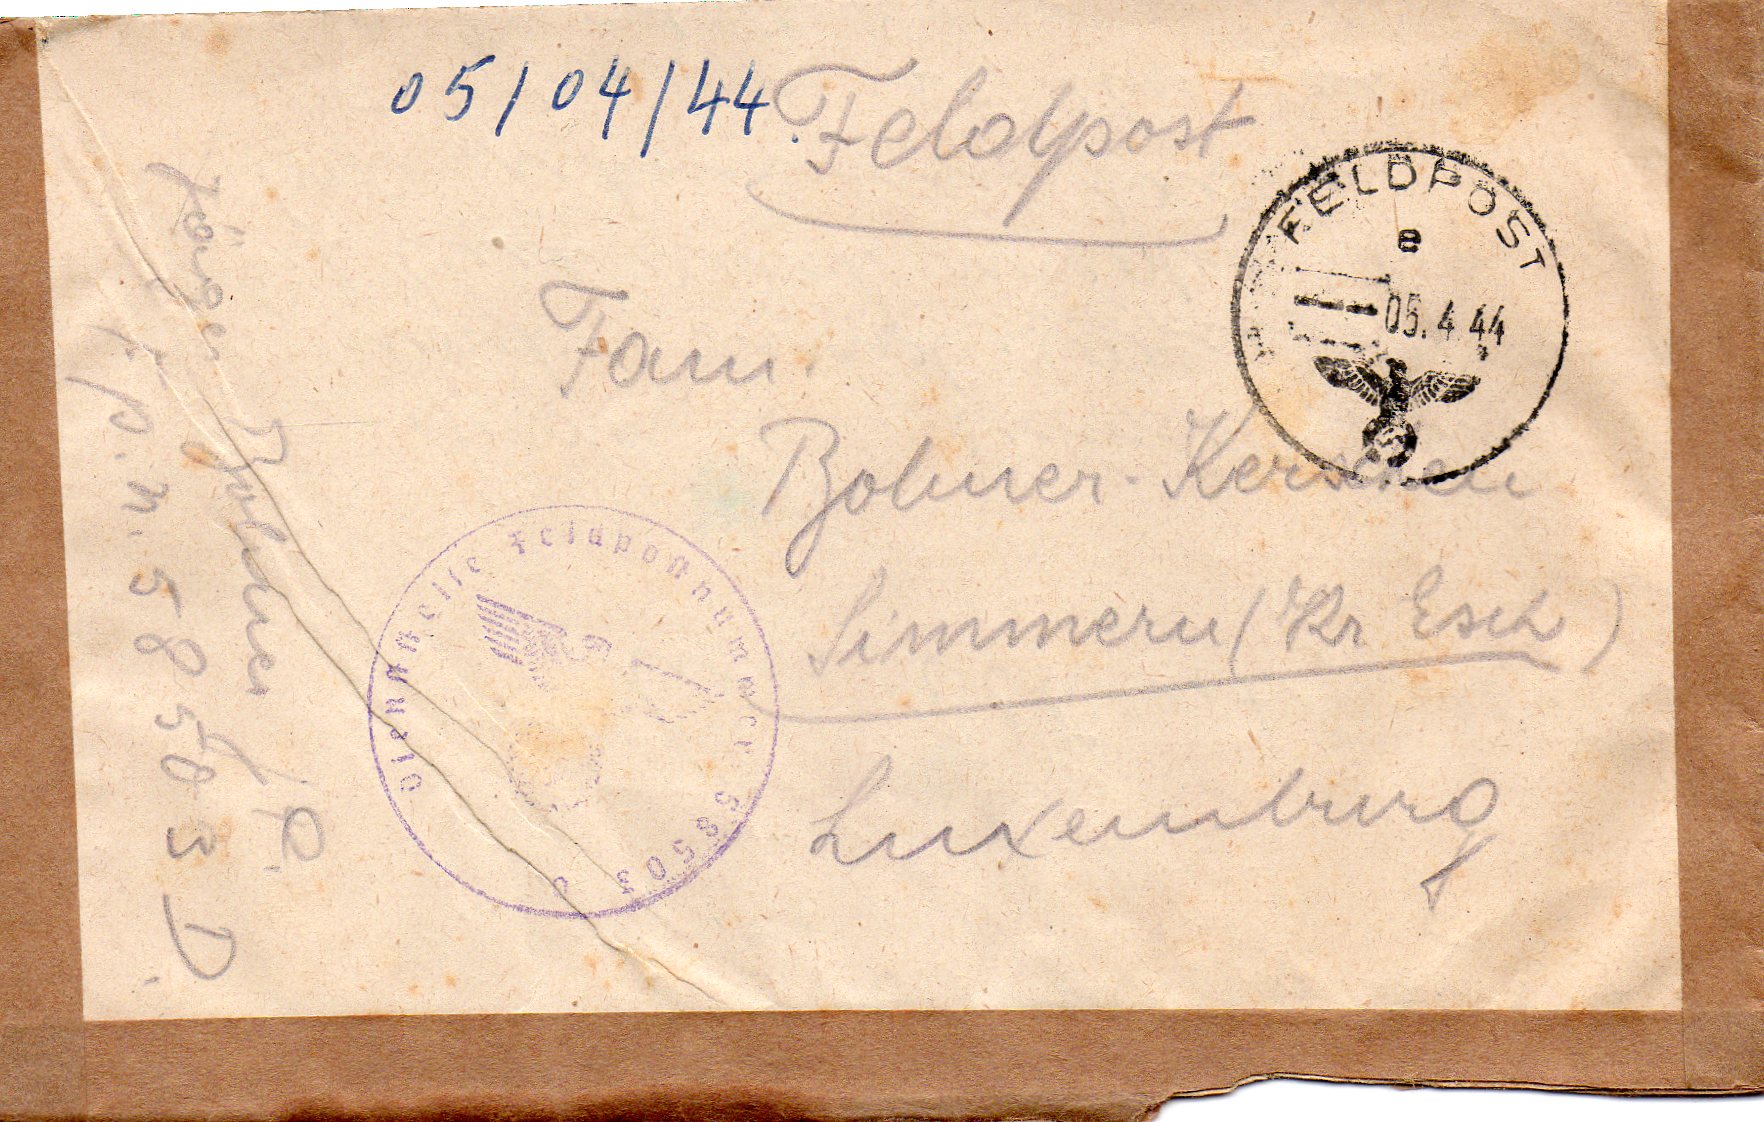 05/04/44.
Feldpost
FELDPOST
a
05.4.44
Fam.
Bohmer-Kerschen
Simmern (Kr Esch)
Luxemburg
Dienststelle Feldpostnummer 58503 D
Jäger Bohmer
F.P.N. 58503 D.